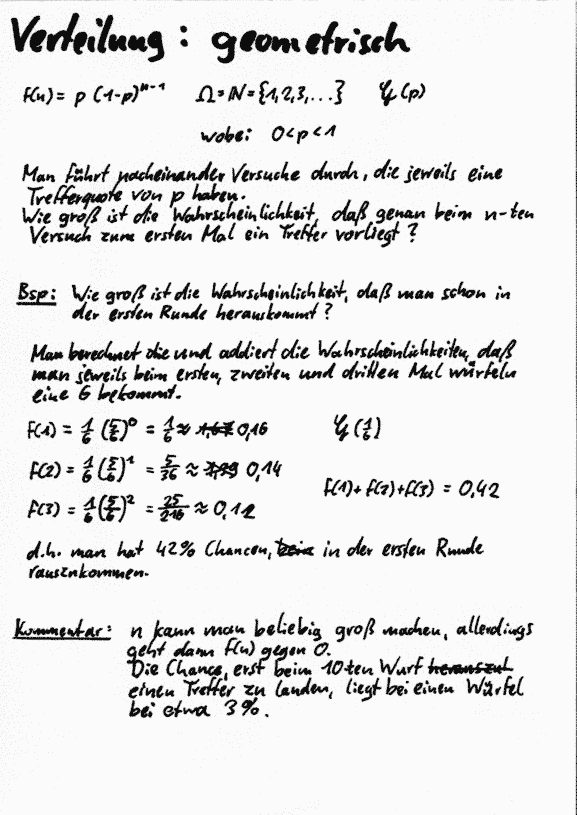 Verteilung: geometrisch
f(n) = p (1-p)^{n-1} Ω = ℕ = {1,2,3,...} 𝒢(p)
wobei 0<p<1
Man führt nacheinander Versuche durch, die jeweils eine
Trefferquote von p haben.
Wie groß ist die Wahrscheinlichkeit, daß genau beim n-ten
Versuch zum ersten Mal ein Treffer vorliegt?
Bsp: Wie groß ist die Wahrscheinlichkeit, daß man schon in
der ersten Runde herauskommt?
Man berechnet die und addiert die Wahrscheinlichkeiten, daß
man jeweils beim ersten, zweiten und dritten Mal würfeln
eine 6 bekommt.
f(1) = 1/6 (5/6)^0 = 1/6 ≈ 0,16 𝒢(1/6)
f(2) = 1/6 (5/6)^1 = 5/36 ≈ 0,14
f(1)+f(2)+f(3) = 0,42
f(3) = 1/6 (5/6)^2 = 25/216 ≈ 0,12
d.h. man hat 42% Chancen, in der ersten Runde
rauszukommen.
Kommentar: n kann man beliebig groß machen, allerdings
geht dann f(n) gegen 0.
Die Chance, erst beim 10ten Wurf
einen Treffer zu landen, liegt bei einen Würfel
bei etwa 3%.